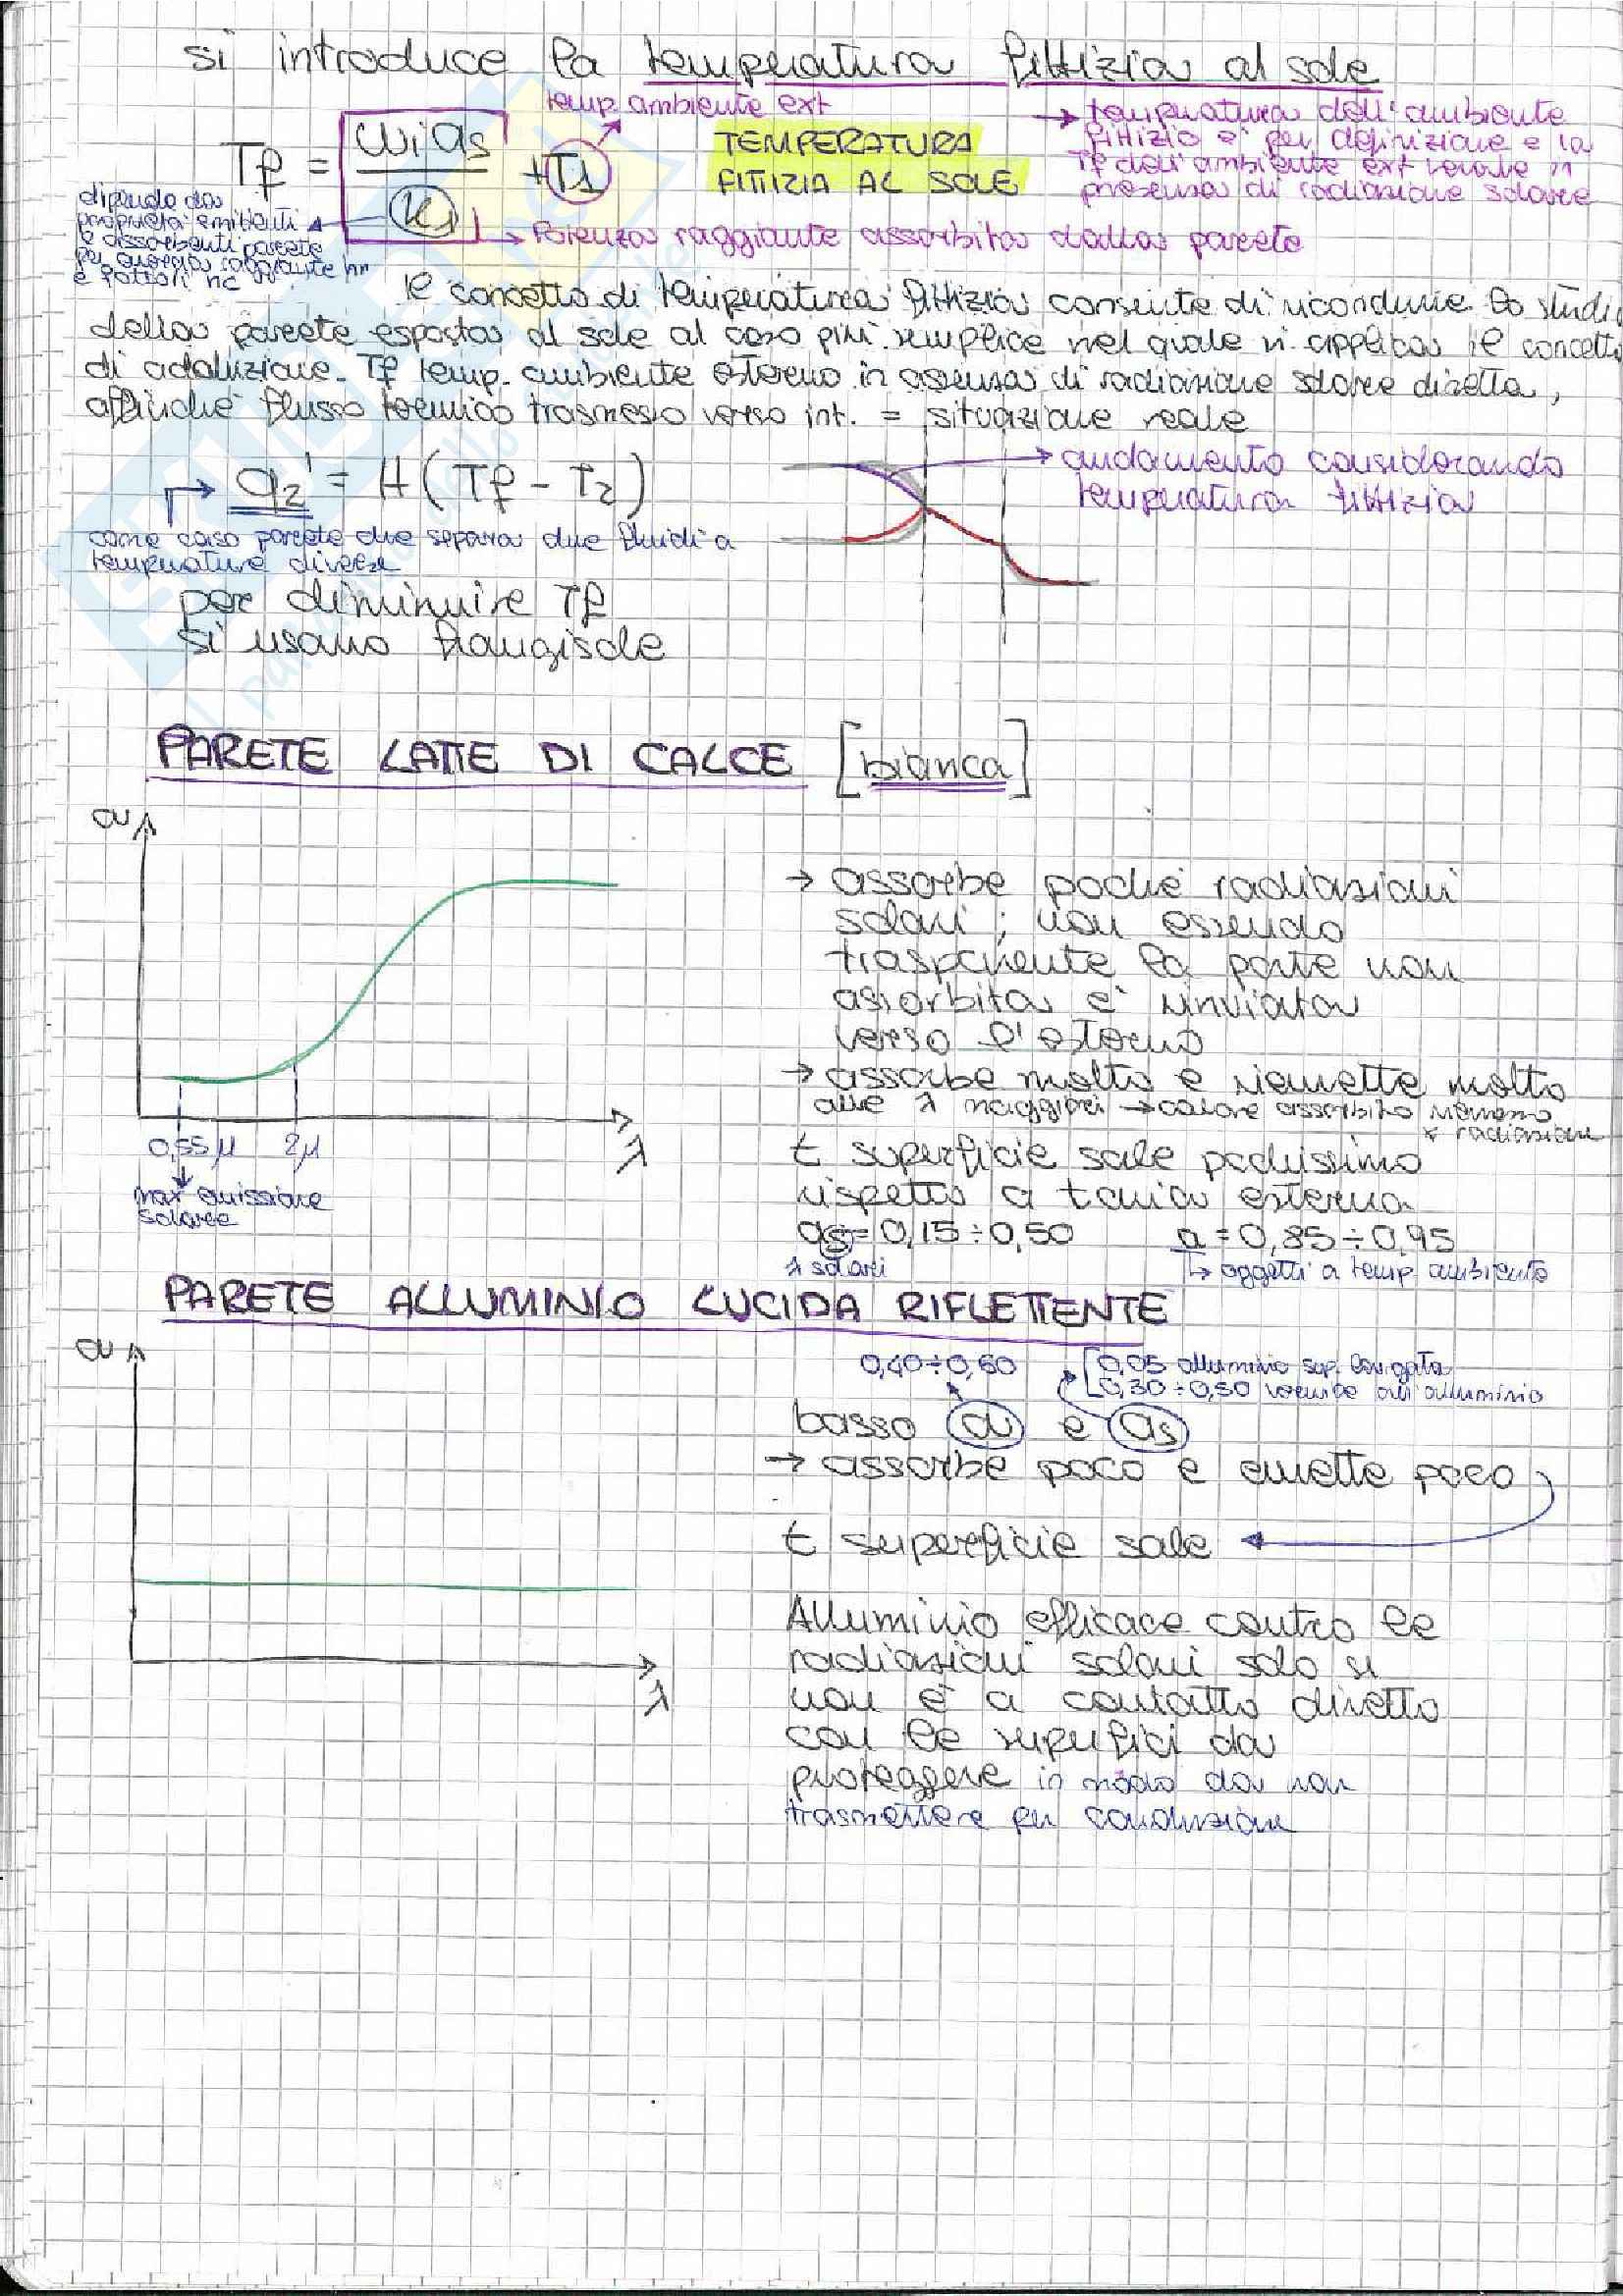 si introduce la temperatura fittizia al sole
temp. ambiente ext
Tf = wi as / K1 + T1
TEMPERATURA
FITTIZIA AL SOLE
→ temperatura dell'ambiente
fittizio è per definizione e la
Tf dell'ambiente ext reale in
presenza di radiazione solare
dipende da
proprietà emittenti
e assorbenti parete
per energia raggiante hr
e fattori hc
→ Potenza raggiante assorbita dalla parete
il concetto di temperatura fittizia consente di ricondurre lo studio
della parete esposta al sole al caso più semplice nel quale si applica il concetto
di adduzione. Tf temp. ambiente esterno in assenza di radiazione solare diretta,
affinché flusso termico trasmesso verso int. = situazione reale
→ q2' = H (Tf - T2)
come caso parete che separa due fluidi a
temperature diverse
→ andamento considerando
temperatura fittizia
per diminuire Tf
si usano frangisole
PARETE LATTE DI CALCE [bianca]
a
→ assorbe poche radiazioni
solari; non essendo
trasparente la parte non
assorbita è rinviata
verso l'esterno
→ assorbe molto e riemette molto
alle λ maggiori → calore assorbito riemesso
x radiazione
0,55 μ 2μ
λ
max emissione
solare
t superficie sale pochissimo
rispetto a t aria esterna
as = 0,15 ÷ 0,50 a = 0,85 ÷ 0,95
λ solari
↳ oggetti a temp. ambiente
PARETE ALLUMINIO LUCIDA RIFLETTENTE
a
0,40 ÷ 0,60
0,05 alluminio sup. levigata
0,30 ÷ 0,50 vernice all'alluminio
basso a e as
→ assorbe poco e emette poco
t superficie sale
λ
Alluminio efficace contro le
radiazioni solari solo se
non è a contatto diretto
con le superfici da
proteggere in modo da non
trasmettere per conduzione